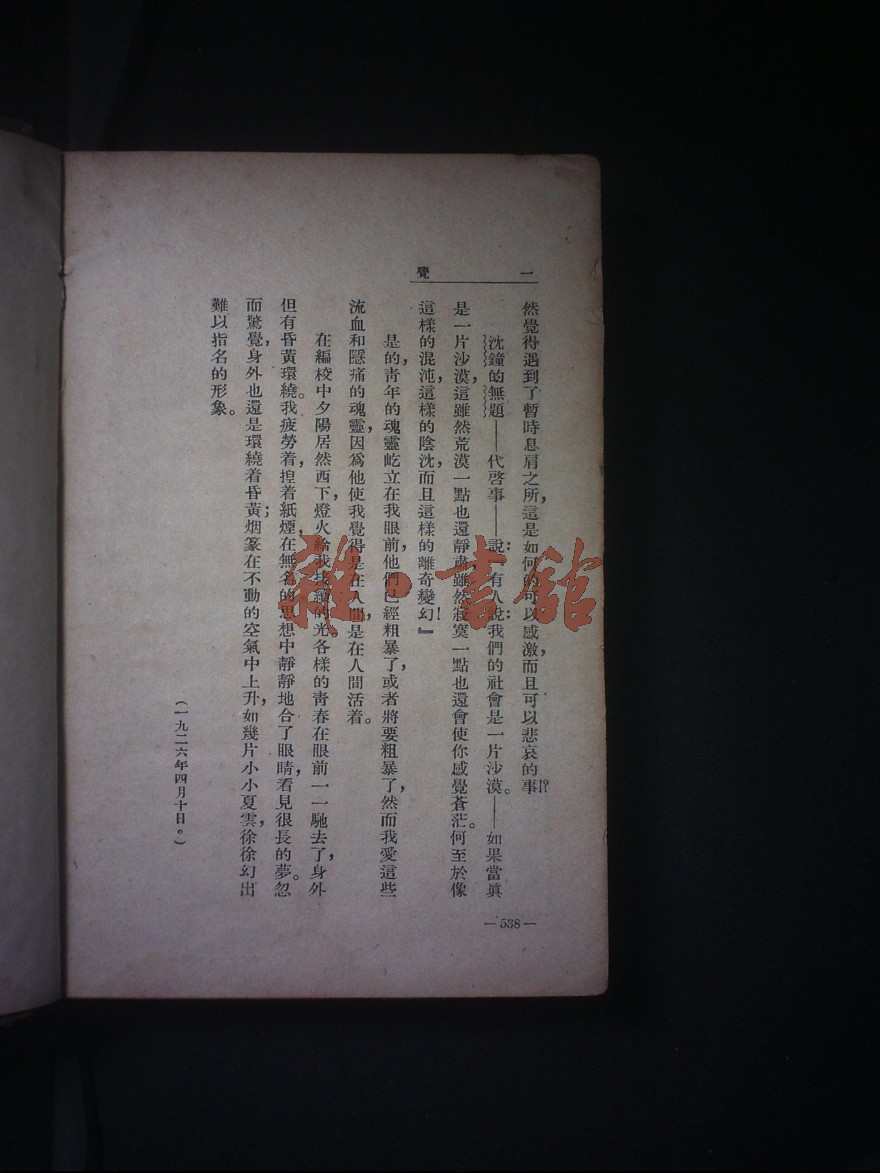 一覺
然覺得遇到了暫時息肩之所，這是如何的可以感激，而且可以悲哀的事⁉
沈鐘的無題——代啓事——說：『有人說：我們的社會是一片沙漠。——如果當眞
是一片沙漠，這雖然荒漠一點也還靜肅；雖然寂寞一點也還會使你感覺蒼茫。何至於像
這樣的混沌，這樣的陰沈，而且這樣的離奇變幻！』
是的，靑年的魂靈屹立在我眼前，他們已經粗暴了，或者將要粗暴了，然而我愛這些
流血和隱痛的魂靈，因爲他使我覺得是在人間，是在人間活着。
在編校中夕陽居然西下，燈火給我接續的光。各樣的靑春在眼前一一馳去了，身外
但有昏黃環繞。我疲勞着，揑着紙煙，在無名的思想中靜靜地合了眼睛，看見很長的夢。忽
而驚覺，身外也還是環繞着昏黃；烟篆在不動的空氣中上升，如幾片小小夏雲，徐徐幻出
難以指名的形象。
（一九二六年四月十日。）
—538—
雜·書館